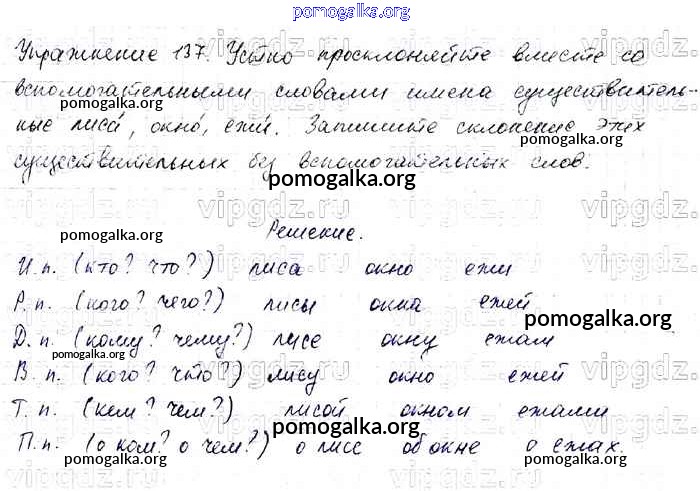 pomogalka.org
Упражнение 137. Устно просклоняйте вместе со
вспомогательными словами имена существитель-
ные лиса́, окно́, ежи́. Запишите склонение этих
существительных без вспомогательных слов.
pomogalka.org
pomogalka.org
pomogalka.org
Решение.
И.п. (кто? что?) лиса окно ежи
Р.п. (кого? чего?) лисы окна ежей
Д.п. (кому? чему?) лисе окну ежам
В.п. (кого? что?) лису окно ежей
Т.п. (кем? чем?) лисой окном ежами
П.п. (о ком? о чем?) о лисе об окне о ежах.
pomogalka.org
pomogalka.org
pomogalka.org
pomogalka.org
pomogalka.org
pomogalka.org
vipgdz.com